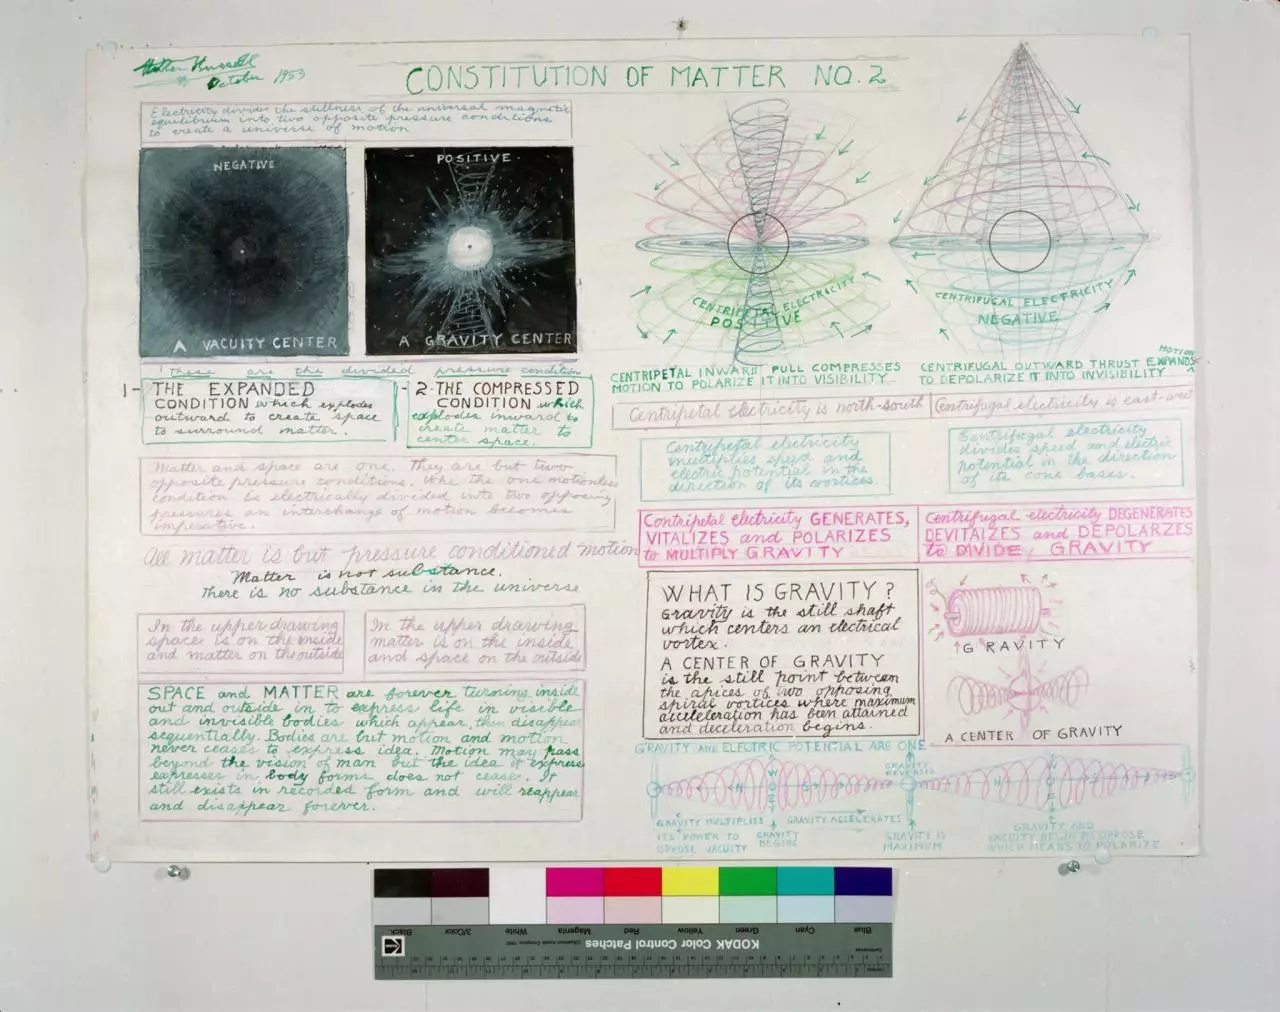 Walter Russell
October 1953
CONSTITUTION OF MATTER NO. 2
Electricity divides the stillness of the universal magnetic
equilibrium into two opposite pressure conditions
to create a universe of motion
NEGATIVE
A VACUITY CENTER
POSITIVE
A GRAVITY CENTER
These are the divided pressure condition
1- THE EXPANDED
CONDITION which explodes
outward to create space
to surround matter.
2- THE COMPRESSED
CONDITION which
explodes inward to
create matter to
center space.
Matter and space are one. They are but two
opposite pressure conditions. the one motionless
condition is electrically divided into two opposing
pressures an interchange of motion becomes
imperative.
All matter is but pressure conditioned motion
Matter is not substance.
There is no substance in the universe
In the upper drawing
space is on the inside
and matter on the outside
In the upper drawing
matter is on the inside
and space on the outside
SPACE and MATTER are forever turning inside
out and outside in to express life in visible
and invisible bodies which appear, then disappear
sequentially. Bodies are but motion and motion
never ceases to express idea. Motion may pass
beyond the vision of man but the idea it express
expresses in body forms does not cease. It
still exists in recorded form and will reappear
and disappear forever.
CENTRIPETAL ELECTRICITY
POSITIVE
CENTRIFUGAL ELECTRICITY
NEGATIVE
CENTRIPETAL INWARD PULL COMPRESSES
MOTION TO POLARIZE IT INTO VISIBILITY
MOTION
CENTRIFUGAL OUTWARD THRUST EXPANDS
TO DEPOLARIZE IT INTO INVISIBILITY
Centripetal electricity is north-south
Centrifugal electricity is east-west
Centripetal electricity
multiplies speed and
electric potential in the
direction of its vortices.
Centrifugal electricity
divides speed and electric
potential in the direction
of its cone bases.
Centripetal electricity GENERATES,
VITALIZES and POLARIZES
to MULTIPLY GRAVITY
Centrifugal electricity DEGENERATES
DEVITAIZES and DEPOLARZES
to DIVIDE, GRAVITY
WHAT IS GRAVITY?
Gravity is the still shaft
which centers an electrical
vortex.
A CENTER OF GRAVITY
is the still point between
the apices of two opposing
spiral vortices where maximum
acceleration has been attained
and deceleration begins.
GRAVITY
A CENTER OF GRAVITY
GRAVITY AND ELECTRIC POTENTIAL ARE ONE
GRAVITY
REVERSES
N
S
N
S
GRAVITY MULTIPLIES
ITS POWER TO
OPPOSE VACUITY
GRAVITY
BEGINS
GRAVITY ACCELERATES
GRAVITY IS
MAXIMUM
GRAVITY AND
VACUITY BEGIN TO OPPOSE
WHICH MEANS TO POLARIZE
KODAK Color Control Patches
Blue Cyan Green Yellow Red Magenta White 3/Color Black